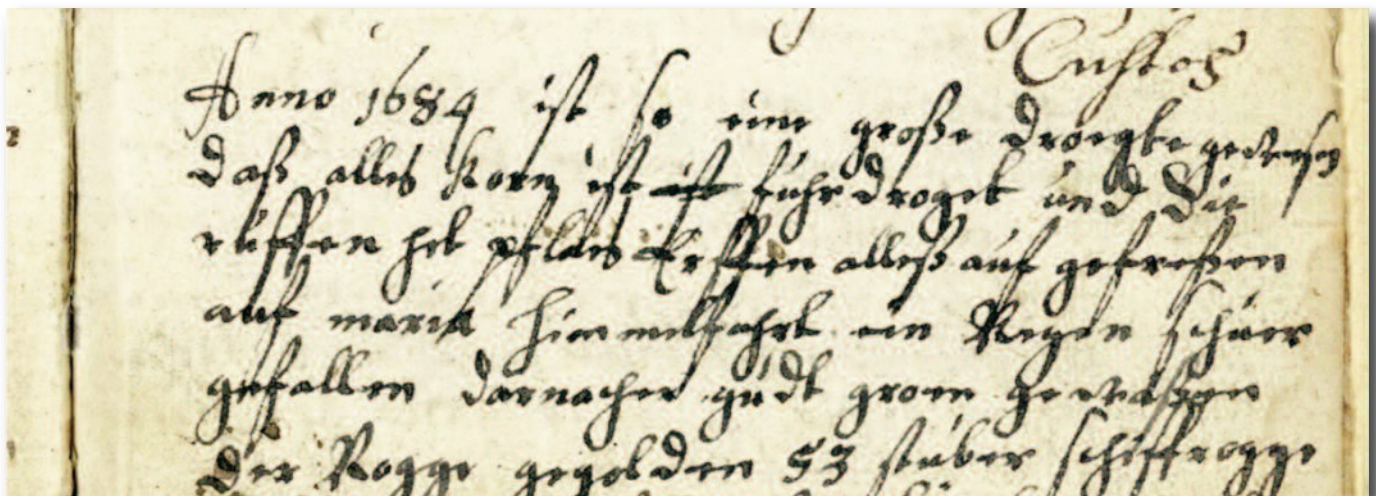 Custos
Anno 1684 ist so eine große droegte gewesen
daß alles Korn ist ist fuhr droget und die
ruffen het alleß auf gefreßen
auf maria Himmelfahrt ein Regen schuer
gefallen darnacher gudt groen gewaßen
Der Rogge gegolden 53 stuber schiffrogge